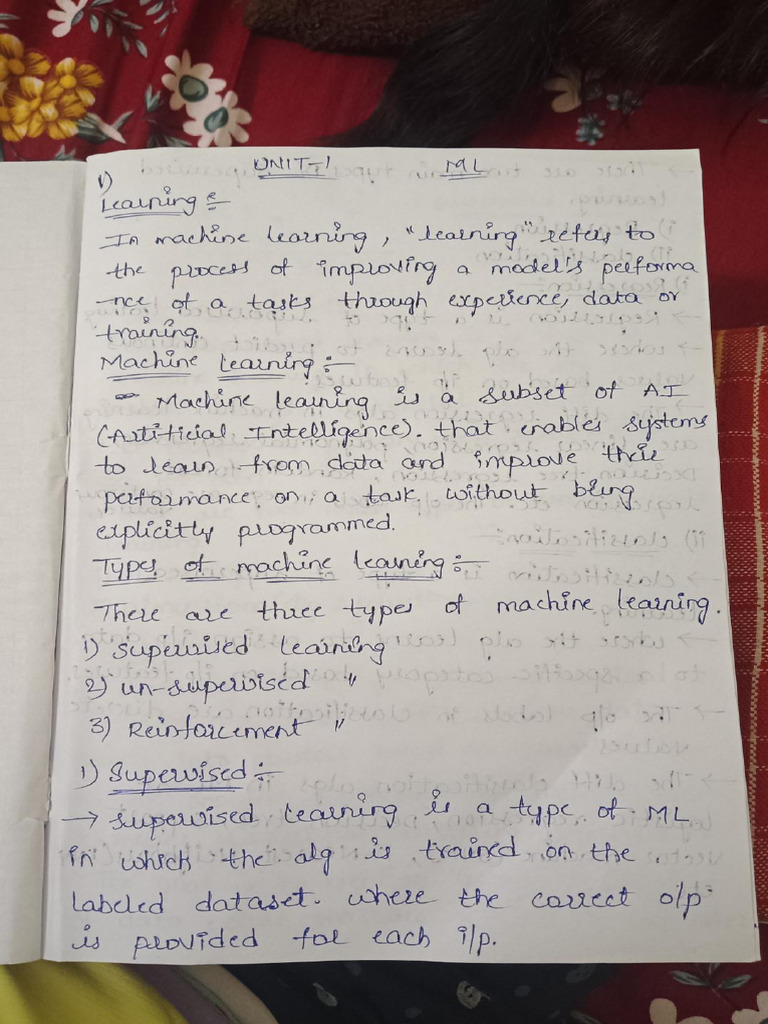 UNIT-1 ML
1)
Learning :-
In machine learning, "learning" refers to
the process of improving a model's performa
-nce of a tasks through experience, data or
training.
Machine Learning :-
- Machine learning is a subset of AI
(Artificial Intelligence). that enables systems
to learn from data and improve their
performance on a task without being
explicitly programmed.
Types of machine learning :-
There are three types of machine learning.
1) Supervised learning
2) un-supervised "
3) Reinforcement "
1) Supervised :-
→ Supervised learning is a type of ML
in which the alg is trained on the
labeled dataset. where the correct o/p
is provided for each i/p.